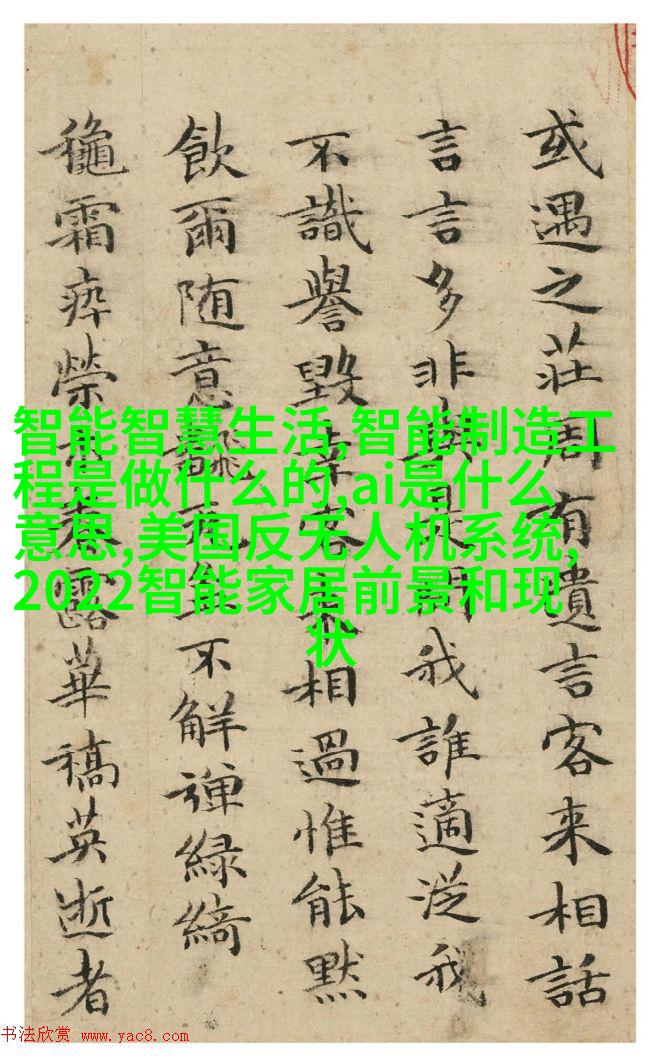 或遇之莊周有遺言客来相話
言言多非我誰適従我
不識譽毀客相過惟能默
飲爾随意不觧彈緑綺
龝霜瘁榮春露華稿英逝者
智能智慧生活,智能制造工
程是做什么的,ai是什么
意思,美国反无人机系统,
2022智能家居前景和现
状
书法欣赏 www.yac8.com